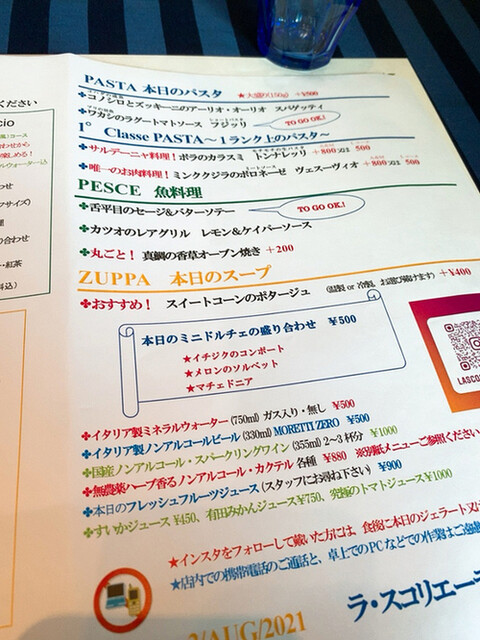 ください
PASTA 本日のパスタ ★大盛り(150g) +¥500
✤コノシロとズッキーニのアーリオ・オーリオ スパゲッティ
✤ワカシのラグートマトソース フジッリ TO GO OK!
1° Classe PASTA～1ランク上のパスタ～
✤サルデーニャ料理！ボラのカラスミ トンナレッリ +800 又は 500
✤唯一のお肉料理！ミンククジラのボロネーゼ ヴェスーヴィオ +800 又は 500
PESCE 魚料理
✤舌平目のセージ&バターソテー TO GO OK!
✤カツオのレアグリル レモン&ケイパーソース
✤丸ごと！ 真鯛の香草オーブン焼き +200
ZUPPA 本日のスープ
✤おすすめ！ スイートコーンのポタージュ (温製 or 冷製、お選び頂けます) +¥400
本日のミニドルチェの盛り合わせ ¥500
★イチジクのコンポート
★メロンのソルベット
★マチェドニア
✤イタリア製ミネラルウォーター (750ml) ガス入り・無し ¥500
✤イタリア製ノンアルコールビール (330ml) MORETTI ZERO ¥500
✤国産ノンアルコール・スパークリングワイン (355ml) 2～3杯分 ¥1000
✤無農薬ハーブ香るノンアルコール・カクテル 各種 ¥880 ※別紙メニューご参照ください
✤本日のフレッシュフルーツジュース (スタッフにお尋ね下さい) ¥900
✤すいかジュース ¥450、有田みかんジュース¥750、究極のトマトジュース¥1000
★インスタをフォローして戴いた方には、食後に本日のジェラート又は
★店内での携帯電話のご通話と、卓上でのPCなどでの作業はご遠慮
ラ・スコリエーラ
/AUG/2021
LASCO
cio
合わせ
・紅茶